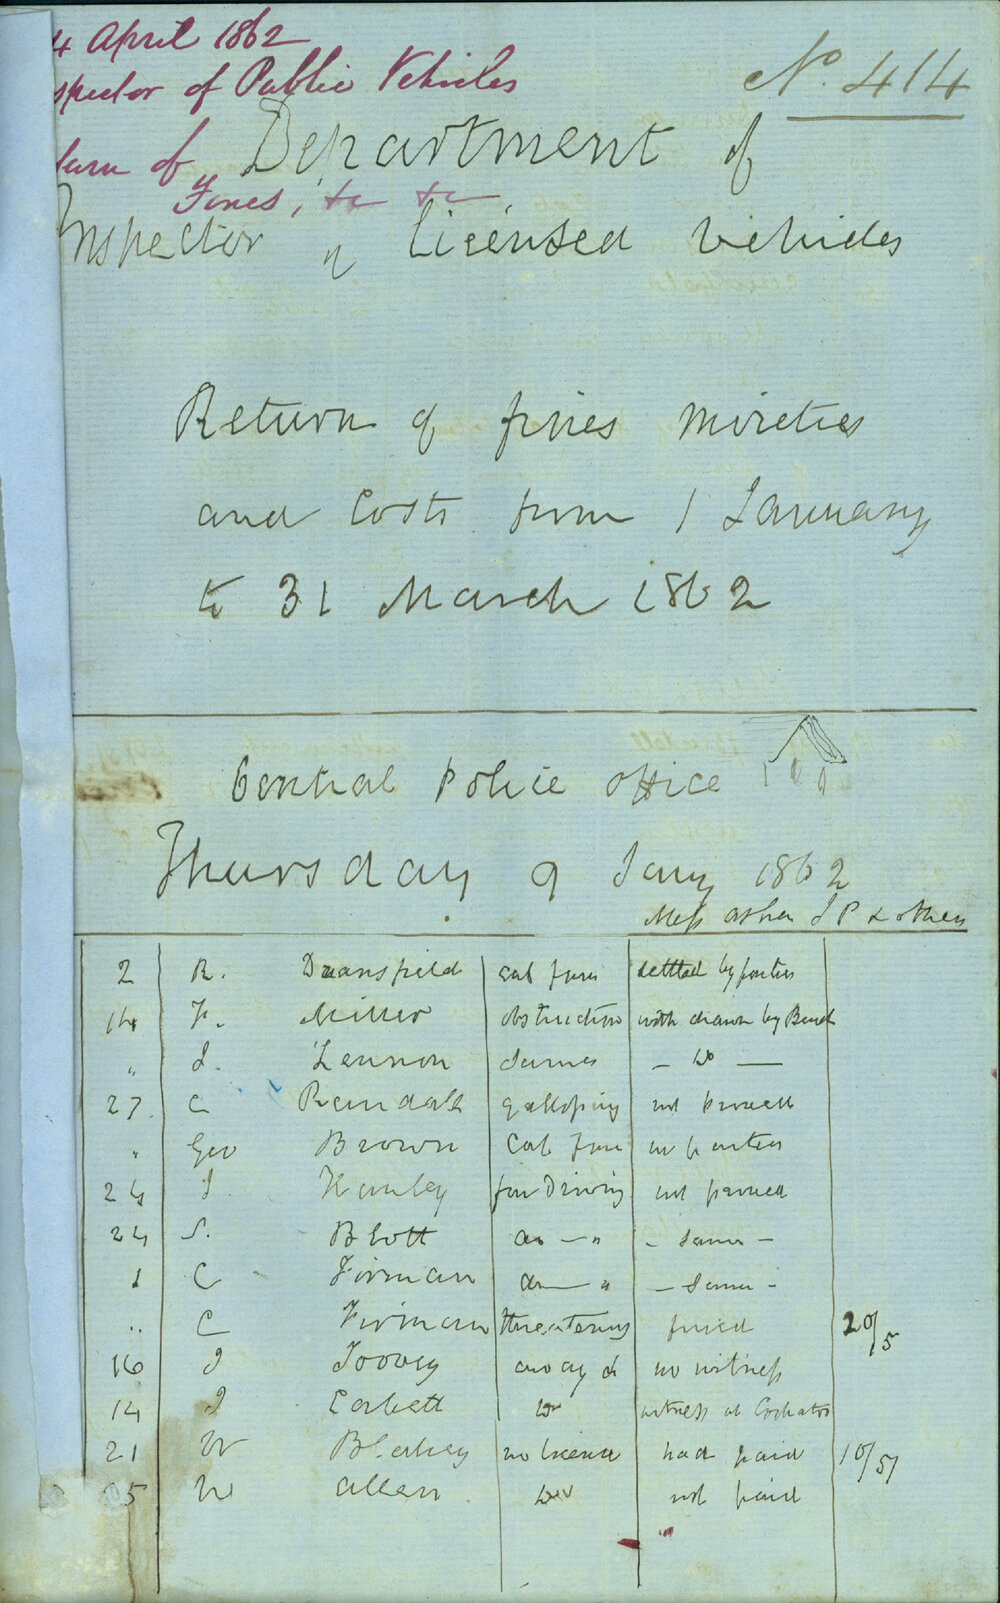 4 April 1862
No. 414
spector of Public Vehicles
turn of
Fines, &c &c
Department of
Inspector of Licensed Vehicles
Return of fines Moieties
and Costs from 1 January
to 31 March 1862
Central Police Office
Thursday 9 Jany 1862
Mess Asher J P & others
2 R. Dransfield cab fare settled by parties
14 F. Miller obstruction withdrawn by Bench
" J. Lennon Sames — Do —
27 C Rendall galloping not proved
" Geo Brown Cab fare no parties
24 J. Hanley fur Driving not proved
24 S. Blott do — " - same -
1 C Firman do — " - same -
" C Firman threatening fined 20/5
16 J Toovey away &c no witness
14 J Corbett Do witness at
21 W Blakey no license had paid 10/5
05 W Allen Do not paid